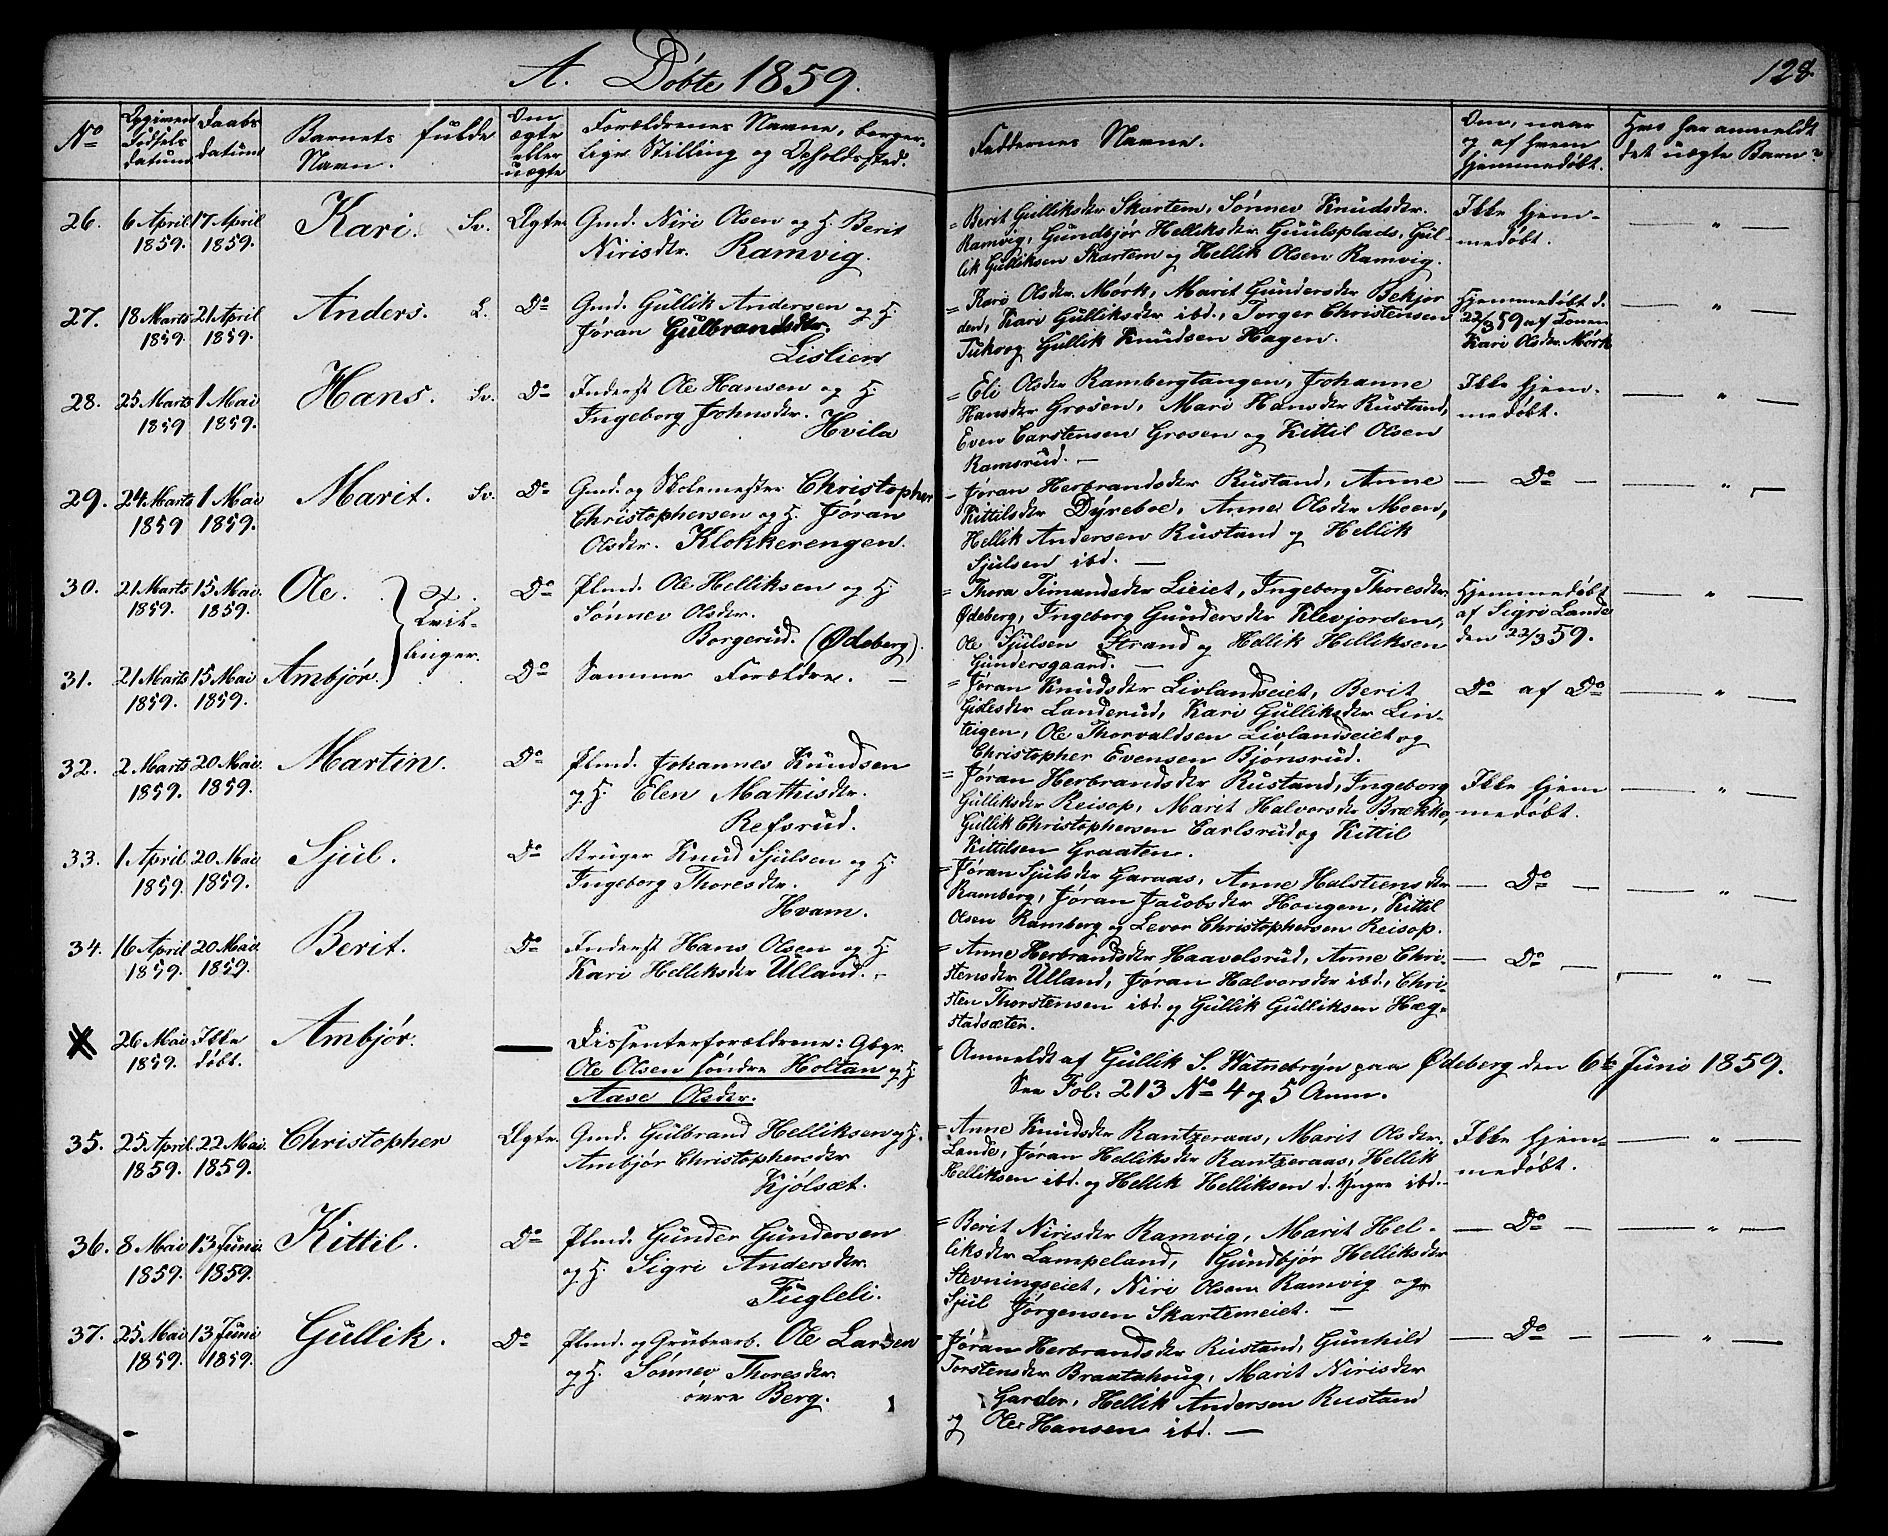 A. Døbte 1859.
128.
No
Fødsels datum
Daabs datum
Barnets fulde Navn.
Om ægte eller uægte
Forældrenes Navne, borgerlige Stilling og Opholdssted.
Faddernes Navne.
Om, naar og af hvem hjemmedøbt.
Hvo har anmeldt det uægte Barn?
26.
6 April 1859.
17 April 1859.
Kari. Sv.
Ægte
Gmd. Niri Olsen og H. Berit
Nirisdtr. Ramvig.
= Berit Gulliksdtr Skartem, Sønnev Knudsdtr.
Ramvig, Gundbjør Helliksdtr. Guulsplads, Gul-
lik Gulliksen Skartem og Hellik Olsen Ramvig.
Ikke hjem-
medøbt.
— " —
27.
18 Marts 1859.
21 April 1859.
Anders. L.
Do
Gmd. Gullik Andersen og H.
Jøran Gulbrandsdtr.
Lislien
= Kari Olsdtr. Mørk, Marit Gundersdtr Bekjor
den, Kari Gulliksdtr ibd., Torger Christensen
og Gullik Knudsen Hagen.
Hjemmedøbt d.
22/3 59 af Konen
Kari Olsdtr. Mørk
— " —
28.
25 Marts 1859
1 Mai 1859.
Hans. Sv.
Do
Inderst Ole Hansen og H.
Ingeborg Johnsdtr.
Hvila
= Eli Olsdtr Rambergtangen, Johanne
Hansdtr Grosen, Mari Hansdtr Rustand,
Even Carstensen Grosen og Kittil Olsen
Ramsrud. —
Ikke hjem-
medøbt.
— " —
29.
24 Marts 1859
1 Mai 1859.
Marit. Sv.
Do
Gmd. og Skolemester Christopher
Christophersen og H. Jøran
Olsdtr. Klokkerengen.
— Jøran Herbrandsdtr Rustand, Anne
Kittilsdtr Dyreboe, Anne Olsdtr Moen,
Hellik Andersen Rustand og Hellik
Sjulsen ibd. —
— Do —
— " —
30.
21 Marts 1859.
15 Mai 1859.
Ole.
Tvil-
linger.
Do
Plmd. Ole Helliksen og H.
Sønnev Olsdtr.
Borgerud. (Ødeberg).
= Thora Timandsdtr Lieiet, Ingeborg Thoresdtr
Ødeberg, Ingeborg Gundersdtr Klevjorden,
Ole Sjulsen Strand og Hellik Helliksen
Gundersgaard. —
Hjemmedøbt
af Sigri Lande
den 22/3 59.
— " —
31.
21 Marts 1859.
15 Mai 1859.
Ambjør.
Do
Samme Forældre. —
= Jøran Knudsdtr Livlandseiet, Berit
Gidesdtr Landerud, Kari Gulliksdtr Lin-
teigen, Ole Thorvaldsen Livlandseiet og
Christopher Evensen Bjørnsrud.
Do af Do
— " —
32.
2 Marts 1859.
20 Mai 1859.
Martin.
Do
Plmd. Johannes Knudsen
og H. Elen Mathisdtr.
Refsrud.
= Jøran Herbrandsdtr Rustand, Ingeborg
Gulliksdtr Reisop, Marit Halvorsdtr Brække,
Gullik Christophersen Carlsrud og Kittil
Kittilsen Graaten.
Ikke hjem
medøbt.
— " —
33.
1 April 1859
20 Mai 1859.
Sjul.
Do
Bruger Knud Sjulsen og H.
Ingeborg Thoresdtr.
Hvam.
= Jøran Sjulsdtr Garaas, Anne Halstensdtr
Ramberg, Jøran Jacobsdtr Hongen, Kittil
Olsen Ramberg og Levor Christophersen Reisop.
— Do —
— " —
34.
16 April 1859.
20 Mai 1859.
Berit.
Do
Inderst Hans Olsen og H.
Kari Helliksdtr Ulland. —
= Anne Herbrandsdtr Haavelsrud, Anne Chri-
stensdtr Ulland, Jøran Halvorsdtr ibd., Chri-
sten Thorstensen ibd. og Gullik Gulliksen Hæg-
stadsæter.
— Do —
— " —
X
26 Mai 1859.
Ikke døbt.
Ambjør.
—
Dissenterforældrene: Gbgr.
Ole Olsen søndre Holtan og H.
Aase Olsdtr.
= Anmeldt af Gullik S. Watnebryn paa Ødeberg den 6te Juni 1859.
See Fol: 213 No 4 og 5 Anm.
35.
25 April 1859.
22 Mai 1859.
Christopher
Ægte
Gmd. Gulbrand Helliksen og H.
Ambjør Christophersdtr
Kjølsæt.
= Anne Knudsdtr Rantzeraas, Marit Olsdtr.
Lande, Jøran Helliksdtr Rantzeraas, Hellik
Helliksen ibd. og Hellik Helliksen d. Yngre ibd.
Ikke hjem-
medøbt.
— " —
36.
8 Mai 1859.
13 Juni 1859.
Kittil.
Do
Plmd. Gunder Gundersen
og H. Sigri Andersdtr.
Fugleli.
= Berit Nirisdtr Ramvig, Marit Hel-
liksdtr Lampeland, Gundbjør Helliksdtr
Stevningseiet, Niri Olsen Ramvig og
Sjul Jørgensen Skartemeiet. —
— Do —
— " —
37.
25 Mai 1859.
13 Juni 1859.
Gullik.
Do
Plmd. og Grubearb. Ole Larsen
og H. Sønnev Thoresdtr
øvre Berg.
= Jøran Herbrandsdtr Rustand, Gunhild
Torstensdtr Braatahoug, Marit Nirisdtr
Garder, Hellik Andersen Rustand
og Ole Hansen ibd. —
— Do —
— " —